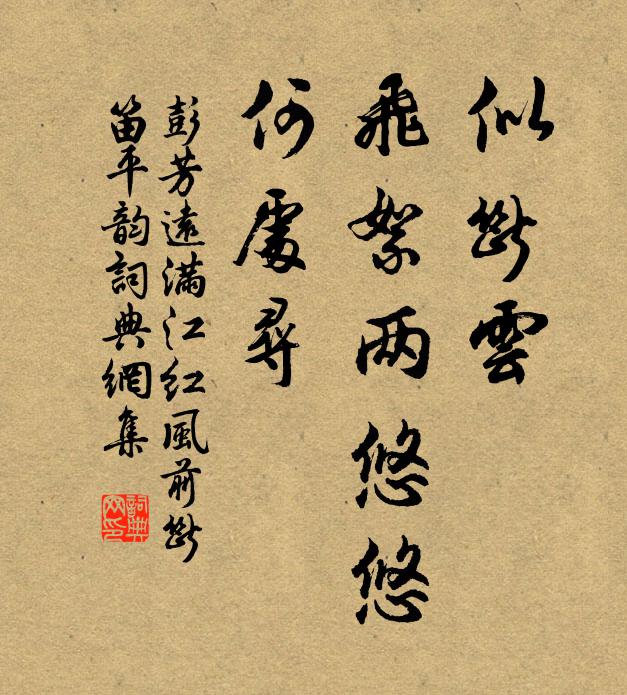 似斷雲
飛絮两悠悠
何處尋
彭芳遠滿江红風前斷
笛平韵詞典網集
詞典
网印